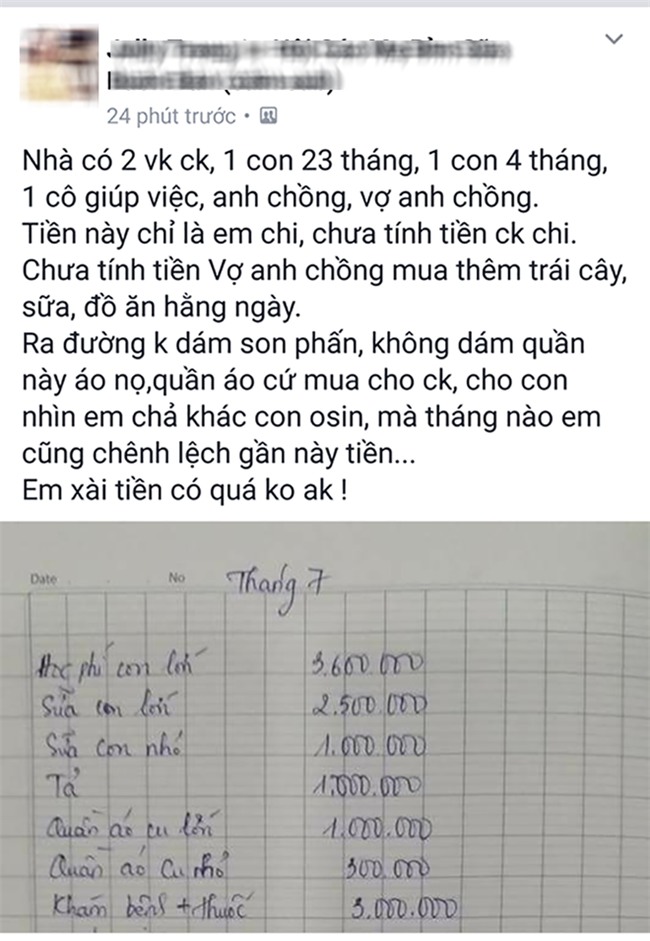 24 phút trước
Nhà có 2 vk ck, 1 con 23 tháng, 1 con 4 tháng,
1 cô giúp việc, anh chồng, vợ anh chồng.
Tiền này chỉ là em chi, chưa tính tiền ck chi.
Chưa tính tiền Vợ anh chồng mua thêm trái cây,
sữa, đồ ăn hằng ngày.
Ra đường k dám son phấn, không dám quần
này áo nọ,quần áo cứ mua cho ck, cho con
nhìn em chả khác con osin, mà tháng nào em
cũng chênh lệch gần này tiền...
Em xài tiền có quá ko ak !
Date No Tháng 7
Học phí con lớn 3.600.000
Sữa con lớn 2.500.000
Sữa con nhỏ 1.000.000
Tả 1.000.000
Quần áo cu lớn 1.000.000
Quần áo cu nhỏ 300.000
Khám bệnh + thuốc 3.000.000